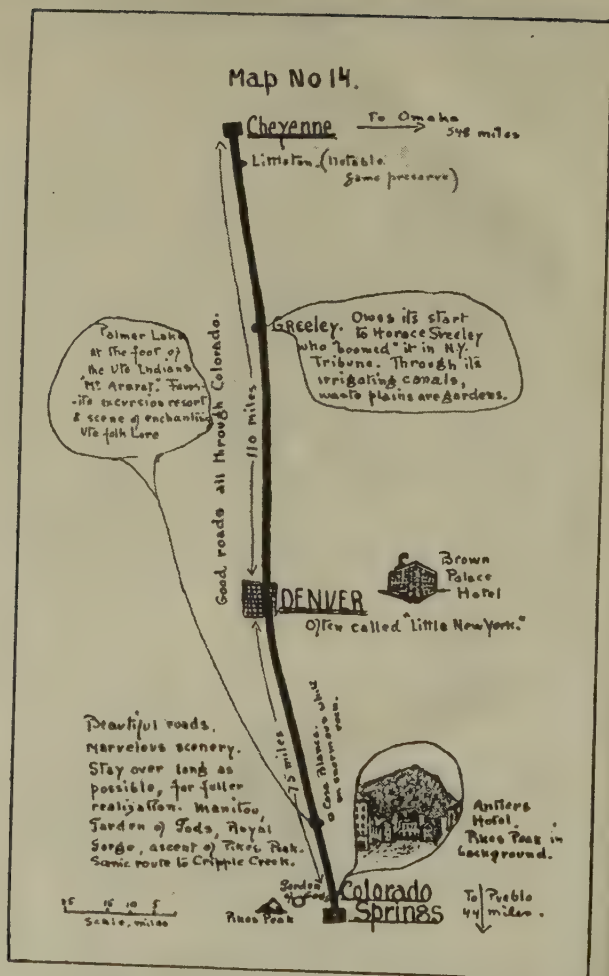 Map No 14.
Cheyenne
To Omaha
548 miles
Littleton (Notable
game preserve)
GREELEY. Owes its start
to Horace Greeley
who "boomed" it in N.Y.
Tribune. Through its
irrigating canals,
waste plains are gardens.
Palmer Lake
at the foot of
the Ute Indians
"Mt. Ararat." Favor-
-ite excursion resort
& scene of enchanting
Ute folk Lore
Good roads all through Colorado.
110 miles
Brown
Palace
Hotel
DENVER
Often called "Little New York."
75 miles
Casa Blanca. white
on enormous rock.
Beautiful roads,
Marvelous scenery.
Stay over long as
possible, for fuller
realization. Manitou,
Garden of Gods, Royal
Gorge, ascent of Pikes Peak.
Scenic route to Cripple Creek.
Antlers
Hotel.
Pikes Peak in
background.
Garden
of Gods
Pikes Peak
Colorado
Springs
To Pueblo
44 miles.
15 10 5
Scale, miles